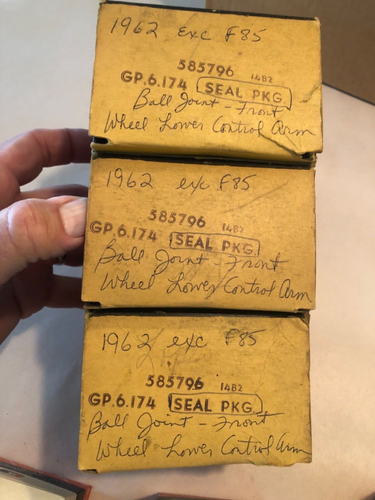 1962 exc F85
585796 14B2
GP.6.174 SEAL PKG.
Ball Joint - Front
Wheel Lower Control Arm
1962 exc F85
585796 14B2
GP.6.174 SEAL PKG.
Ball Joint - Front
Wheel Lower Control Arm
1962 exc F85
585796 14B2
GP.6.174 SEAL PKG.
Ball Joint - Front
Wheel Lower Control Arm